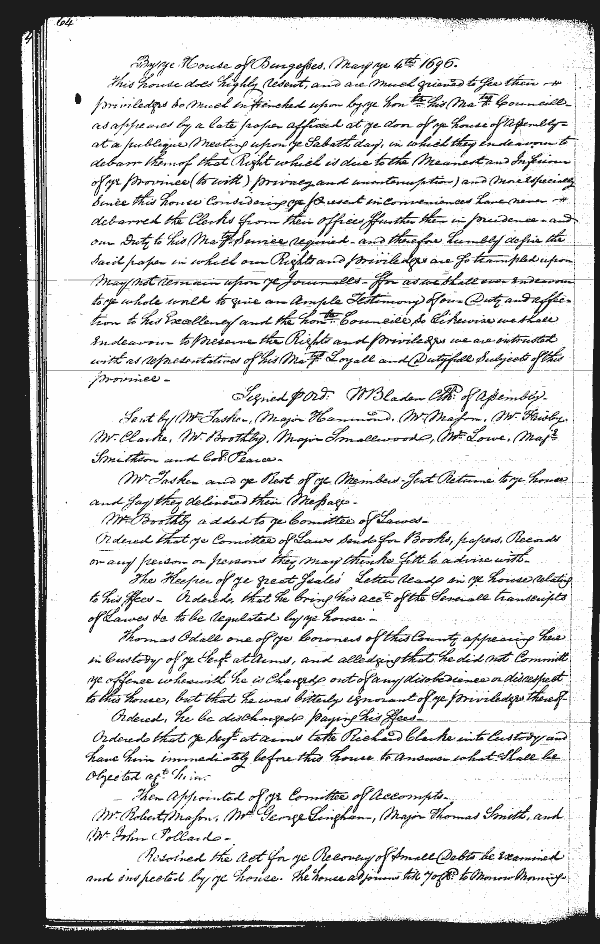 64
By ye House of Burgesses, May ye 4th 1696.
This house does highly resent, and are much grieved to see their
priviledges so much infrinched upon by ye honble his Matys Councill
as appeares by a late paper affixed at ye door of ye house of Assembly
at a publique Meeting upon ye Sabath day, in which they endeavour to
debarr them of that Right which is due to the Meanest and Inferiour
of ye Province (to witt) privacy and uninterruption) and more especially
since this house Considering ye present inconveniences have never
debarred the Clarks from their office ffurther then in prudence and
our Duty to his Matys Service required and therefore humbly desire the
said paper in which our Rights and priviledges are so trampled upon
may not remain upon ye Journalls ffor as we shall ever endeavour
to ye whole world to give an Ample Testimony of our Duty and affec-
tion to his Excellency and the honble Councill, so Likewise we shall
Endeavour to Preserve the Rights and Priviledges we are intrusted
with as representatives of his Matys Loyall and Dutyfull Subjects of this
province -
Signed p Ord. W Bladen Clk. of Assembly.
Sent by Mr Tasker, Major Hammond, Mr Mason, Mr
Mr Clarke, Mr Boothby, Major Smallwood, Mr Lowe, Majr
Smithson and Col. Pearce -
Mr Tasker and ye Rest of ye Members sent Returne to ye house
and say they delivered their Message -
Mr Boothby added to ye Comittee of Lawes -
Ordered that ye Comittee of Laws send for Books, papers, Records
or any person or persons they may thinke fitt to advise with -
The Keeper of ye great Seales Letter read in ye house relating
to his ffees - Ordered, that he bring his acct of the Severall transcripts
of Lawes &c to be regulated by ye house -
Thomas Odall one of ye Coroners of this County, appearing here
in Custody of ye Serjt at Arms, and alledging that he did not Committ
ye offence wherewith he is Charged out of any disobedience or disrespect
to this house, but that he was utterly ignorant of ye priviledges thereof
Ordered, he be discharged paying his ffees -
Ordered that ye Serjt at arms take Richard Clarke into Custody and
have him immediately before this house to answer what Shall be
Objected agt him.
Then Appointed of ye Comittee of Accompts -
Mr Robert Mason, Mr George Lingham, Major Thomas Smith, and
Mr John Pollard -
Resolved the Act for ye Recovery of Small Debts be Examined
and inspected by ye house. The house adjourns till 7 oClk to Morow Morning